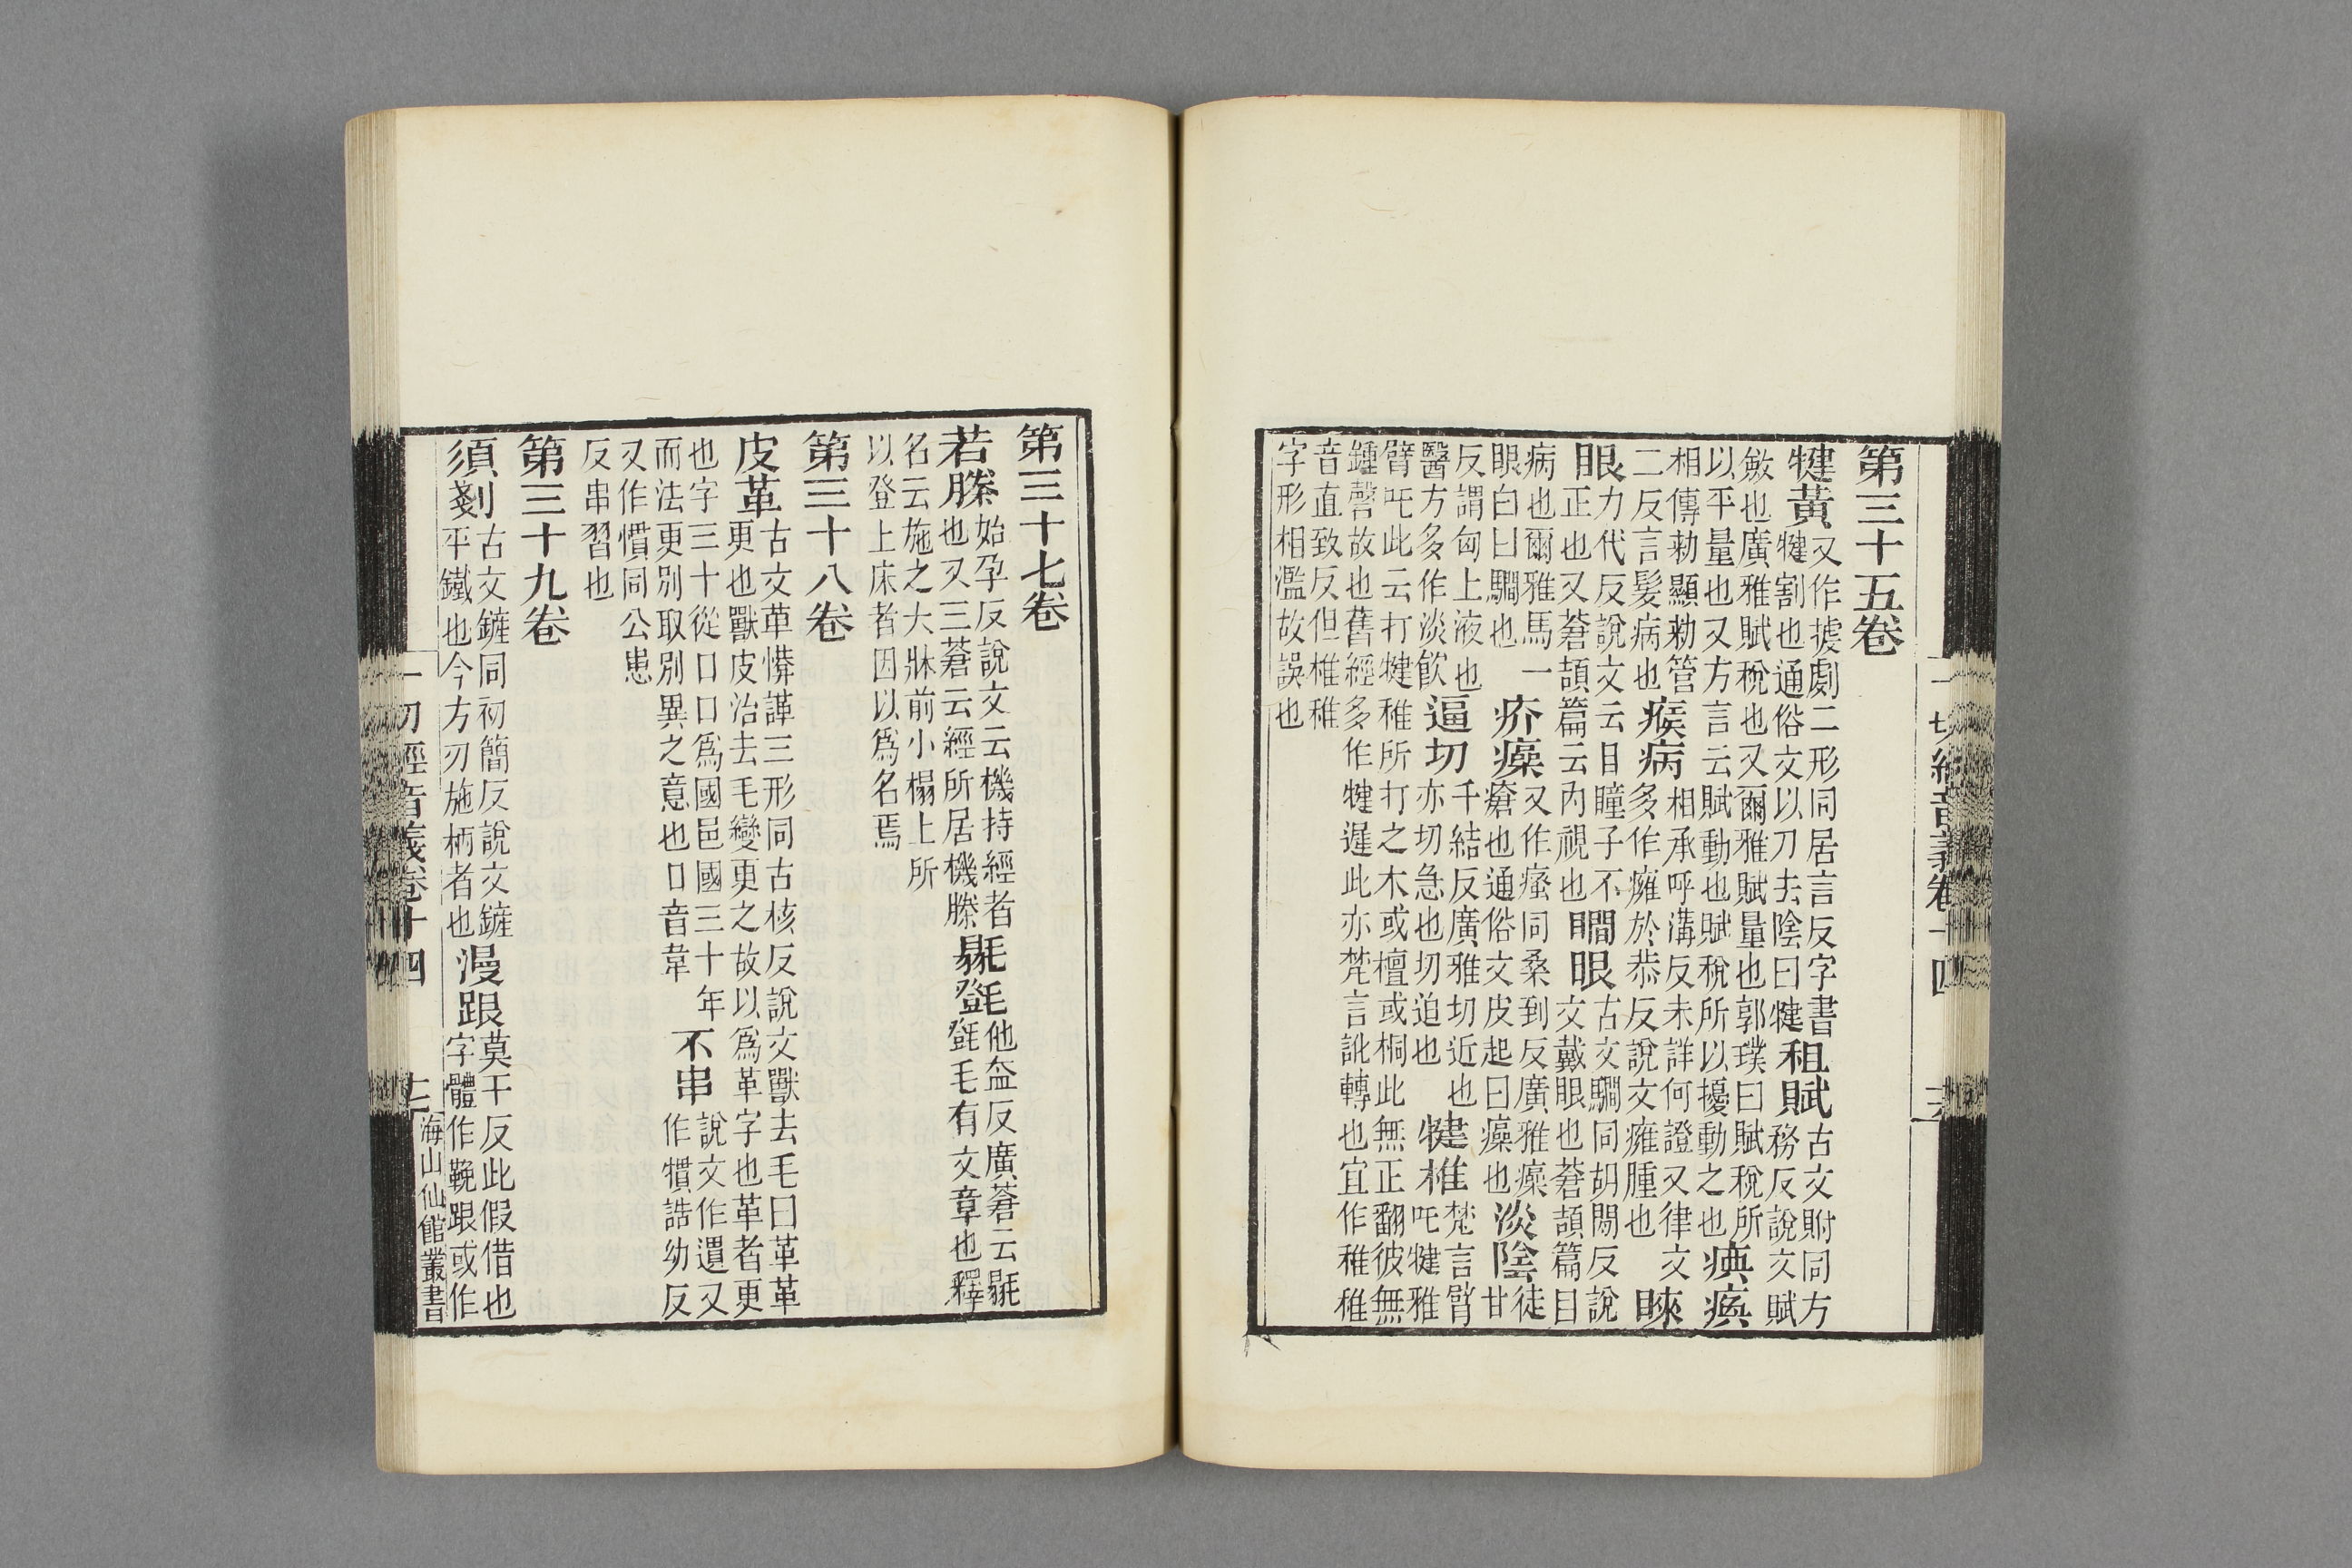 第三十五卷
犍黃又作㨿劇二形同居言反字書
犍割也通俗文以刀去陰曰犍租賦古文䝵同方
務反說文賦
斂也廣雅賦稅也又爾雅賦量也郭璞曰賦稅所
以平量也又方言云賦動也賦稅所以擾動之也瘨瘓
相傳勅顯勅管相承呼溝反未詳何證又律文
二反言髮病也瘊病多作癰於恭反說文癰腫也睞
眼力代反說文云目瞳子不
正也又蒼頡篇云內視也瞷眼古文騆同胡閒反說
文戴眼也蒼頡篇目
病也爾雅馬一
眼白曰騆也疥㿋又作瘙同桑到反廣雅㿋
瘡也通俗文皮起曰㿋也淡陰徒
甘
反謂匈上液也
醫方多作淡飲逼切千結反廣雅切近也
亦切急也切迫也犍椎梵言臂
吒犍雅
臂吒此云打犍稚所打之木或檀或桐此無正翻彼無
鍾磬故也舊經多作犍遲此亦梵言訛轉也宜作稚稚
音直致反但椎稚
字形相濫故誤也
一切經音義卷十四
第三十七卷
若塍始孕反說文云機持經者
也又三蒼云經所居機塍毾㲪他盍反廣蒼云毾
㲪毛有文章也釋
名云施之大牀前小榻上所
以登上床者因以爲名焉
第三十八卷
皮革古文革愅諽三形同古核反說文獸去毛曰革革
更也獸皮治去毛變更之故以爲革字也革者更
也字三十從口口爲國邑國三十年
而法更別取別異之意也口音韋不串說文作遺又
作慣誥幼反
又作慣同公患
反串習也
第三十九卷
須剗古文鏟同初簡反說文鏟
平鐵也今方刃施柄者也漫跟莫干反此假借也
字體作鞔跟或作
一切經音義卷十四
海山仙館叢書